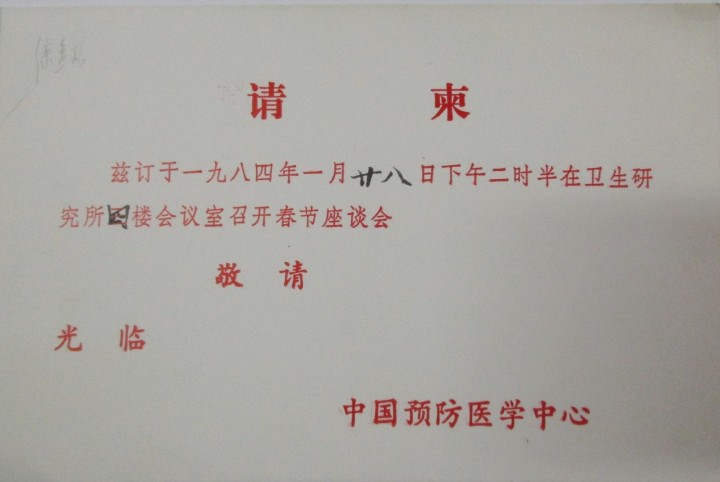 请 柬
兹订于一九八四年一月廿八日下午二时半在卫生研
究所四楼会议室召开春节座谈会
敬 请
光 临
中国预防医学中心